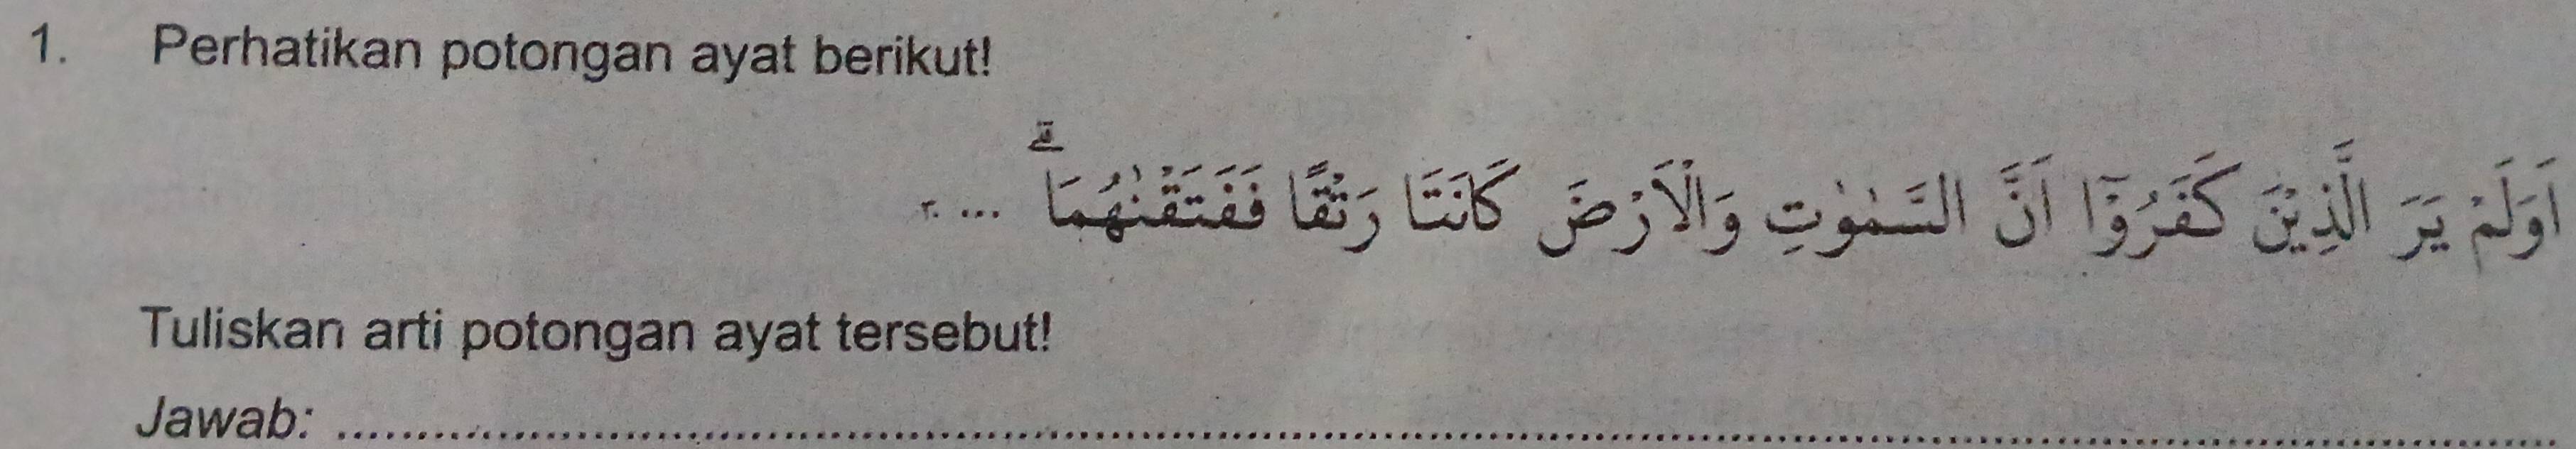 1. Perhatikan potongan ayat berikut!
اَوَلَمْ يَرَ الَّذِيْنَ كَفَرُوْٓا اَنَّ السَّمٰوٰتِ وَالْاَرْضَ كَانَتَا رَتْقًا فَفَتَقْنٰهُمَاۗ ... ٣٠
Tuliskan arti potongan ayat tersebut!
Jawab: ........................................................................................................